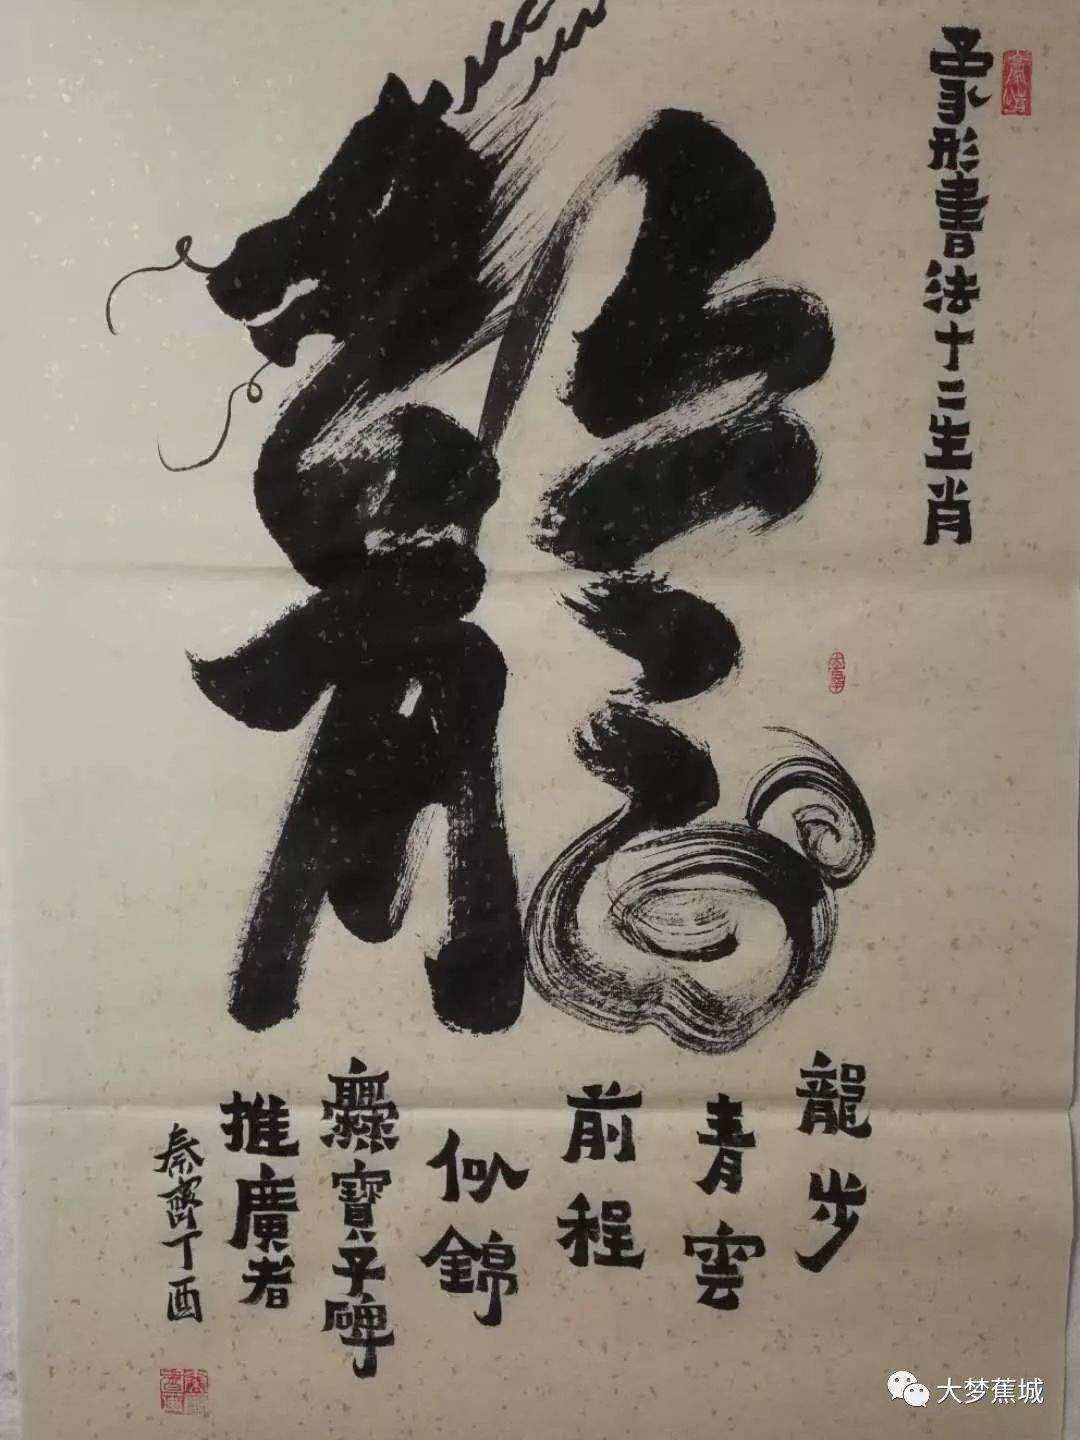 象形書法十二生肖
龍
龍步
青雲
前程
似錦
爨寶子碑
推廣者
秦齊丁酉
大梦蕉城